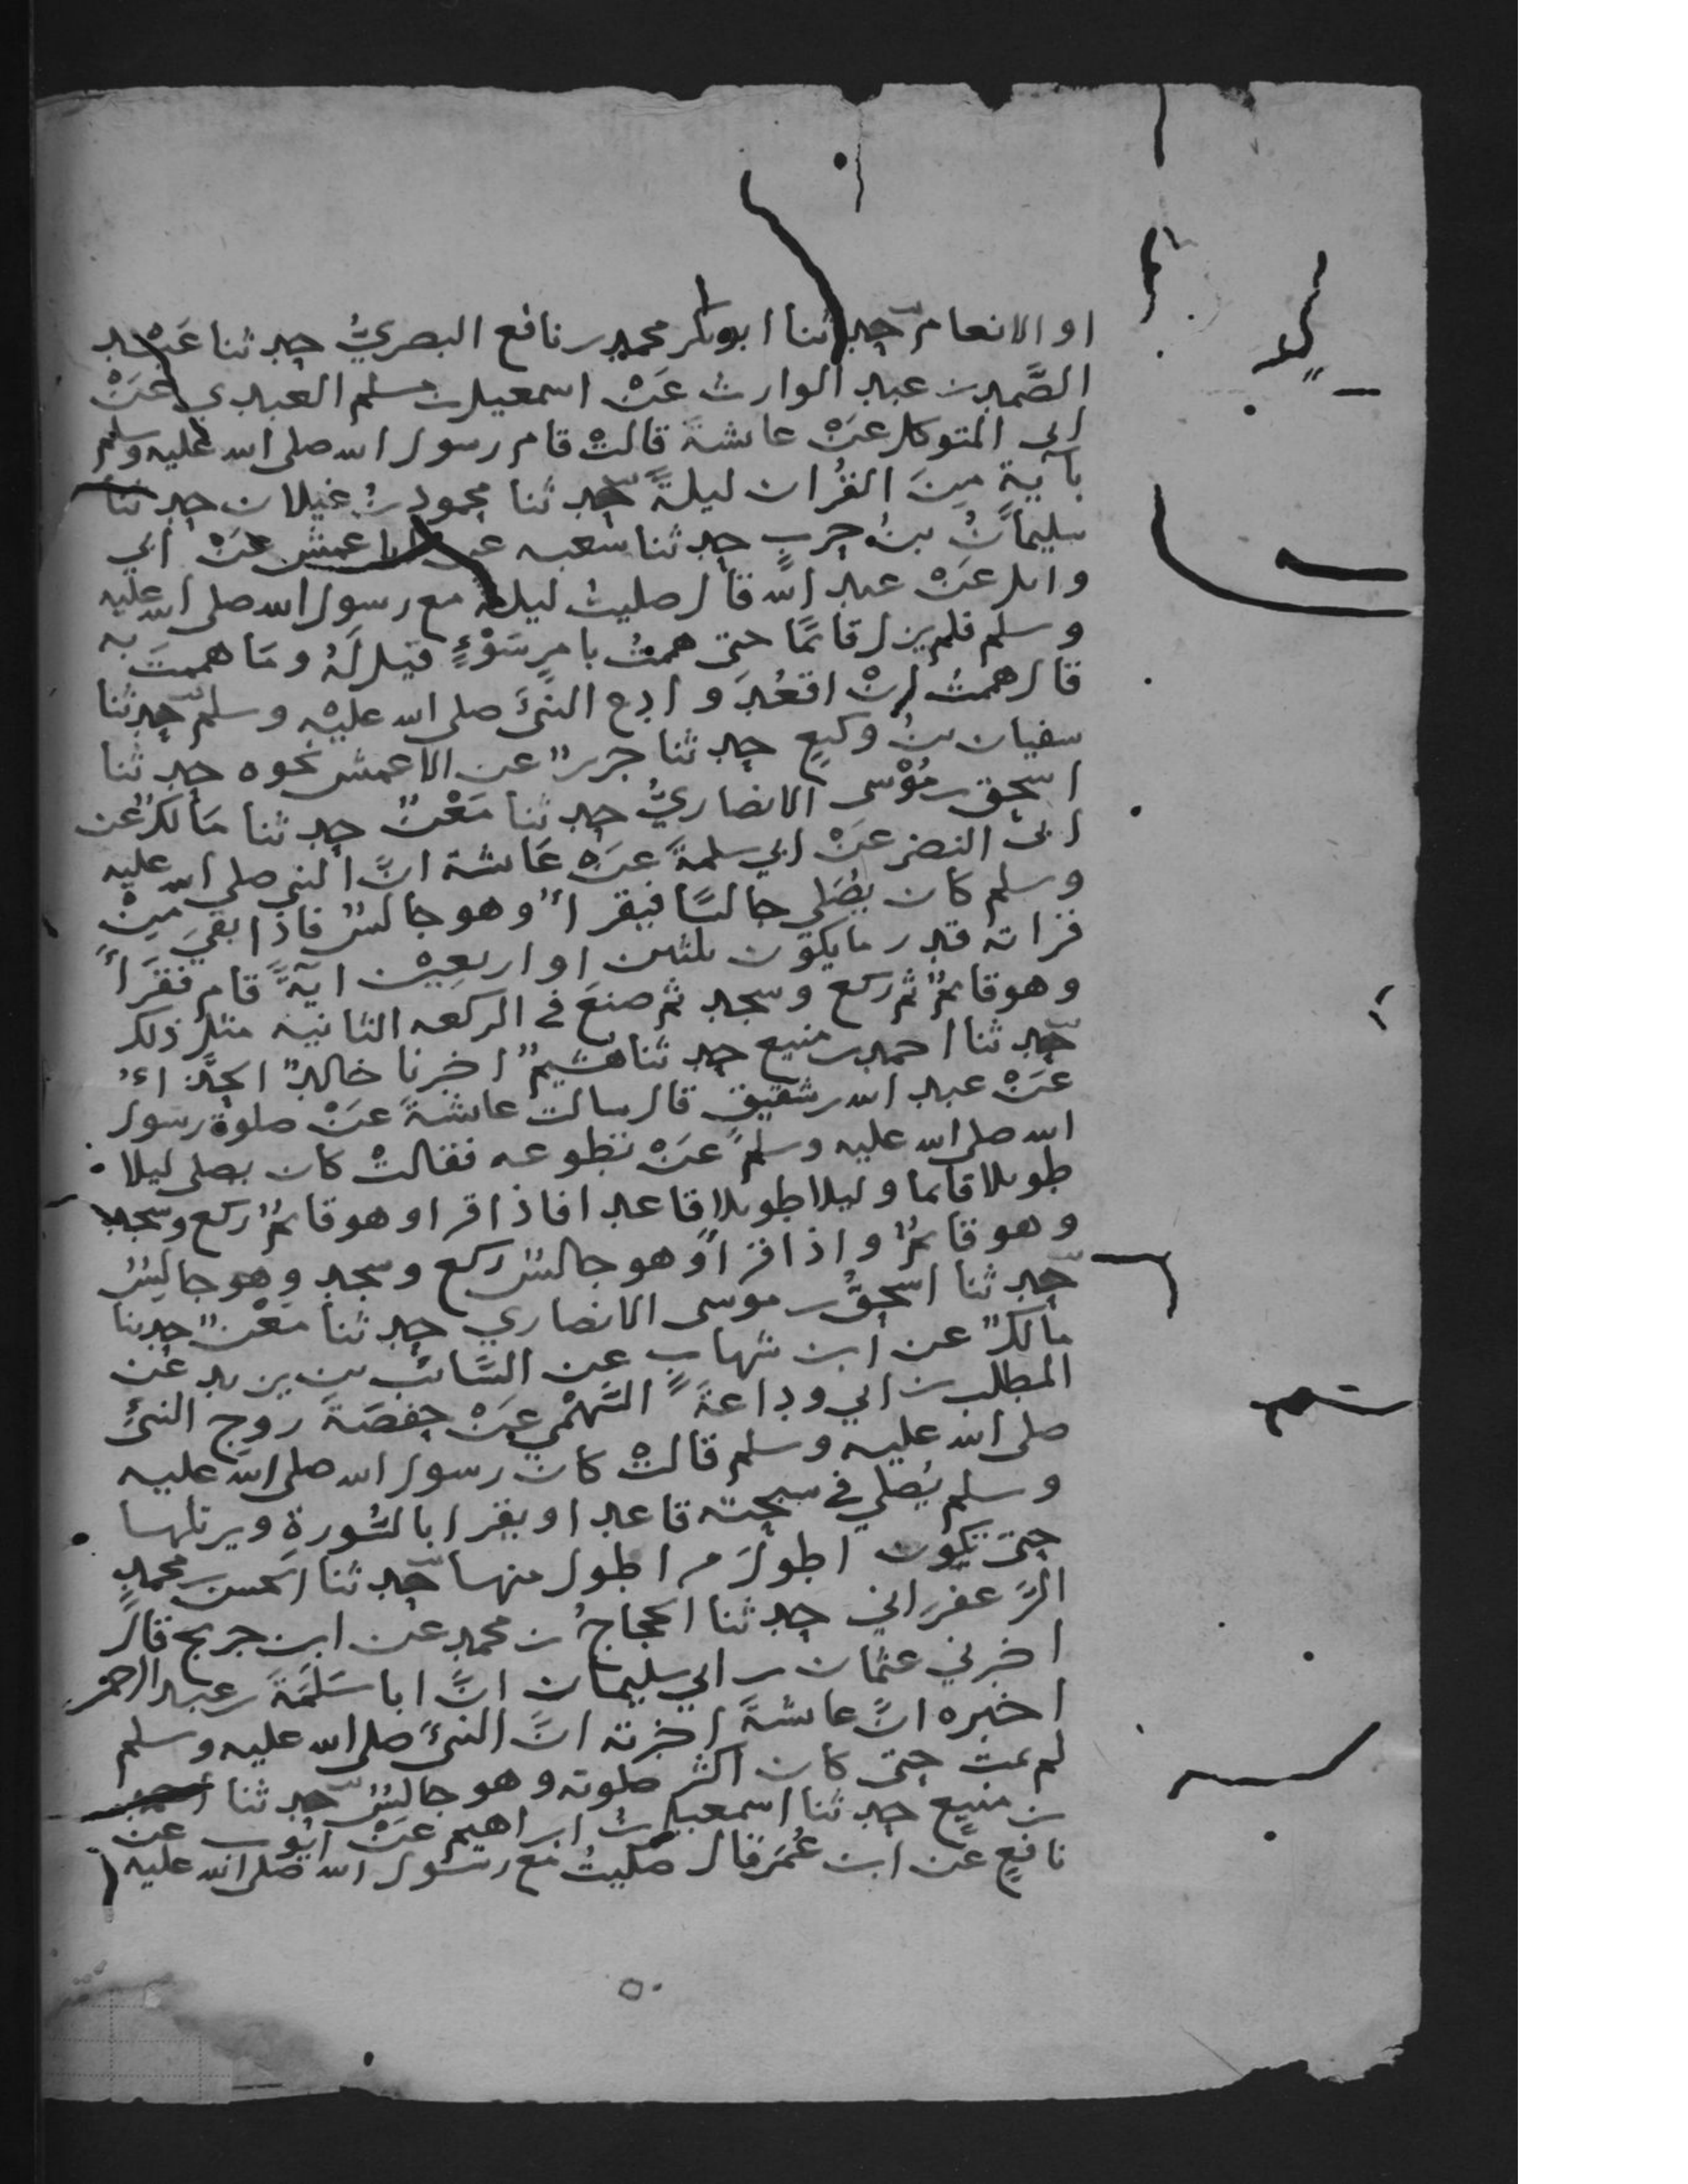 او الانعام حدثنا ابوبكر محمد بن نافع البصريُّ حدثنا عَبْد
الصَّمد بن عبد الوارث عَنْ اسمعيل بن مسلم العبدي عَنْ
ابي المتوكل عَنْ عائشةَ قالتْ قام رسول الله صلى الله عليه وسلم
بآيةٍ مِنَ القُران ليلةً حدثنا محمود بنُ غيلان حدثنا
سليمانُ بنُ حربٍ حدثنا شعبه عن الاعمش عَنْ ابي
وائل عَنْ عبد الله قال صليتُ ليلة مع رسول الله صلى الله عليه
وسلم فلم يزل قائمًا حتى هممتُ بامرِ سَوْءٍ قيل لَهُ ومَا هممتَ به
قال هممتُ انْ اقعُدَ وادع النبيَّ صلى الله عليْه وسلم حدثنا
سفيان بنُ وكيعٍ حدثنا جريرٌ عن الاعمش نحوه حدثنا
اسحق بن مُوْسى الانصاريُّ حدثنا مَعْنٌ حدثنا مَالكٌ عن
ابي النضر عَنْ ابي سلمةَ عَنْ عَائشة انَّ النبي صلى الله عليه
وسلم كان يُصَلي جالسًا فيقرأُ وهو جالسٌ فاذا بقيَ مِنْ
قراته قدر ما يكون ثلثين او اربعِيْن ايةً قام فقَرَأَ
وهو قائمٌ ثم ركع وسجد ثم صنعَ في الركعه الثانية مثل ذلك
حدثنا احمد بن منيع حدثنا هُشيمٌ اخبرنا خالدٌ الحذَّاءُ
عَنْ عبد الله بن شقيقٍ قال سالت عائشةَ عَنْ صلوة رسول
الله صلى الله عليه وسلم عَنْ تطوعه فقالتْ كان يصلي ليلا
طويلا قائما وليلا طويلا قاعدا فاذا قرا وهو قائمٌ ركع وسجد
وهو قائمٌ واذا قرا وهو جالسٌ ركع وسجد وهو جالِسٌ
حدثنا اسحقُ بن موسى الانصاري حدثنا مَعْنٌ حدثنا
مالكٌ عن ابن شهابٍ عن السَّائب بن يزيد عن
المطلب بن ابي وداعةَ السَّهْمي عَنْ حفصَةَ زوج النبيِّ
صلى الله عليه وسلم قالتْ كان رسول الله صلى الله عليه
وسلم يُصلي في سبحته قاعدا ويقرا بالسُّورةِ ويرتلها
حتى تكون اطولَ من اطول منها حدثنا الحسن بن محمدٍ
الزَّعفَراني حدثنا الحجاجُ بن محمد عن ابن جريج قالَ
اخبرني عثمان بن ابي سليمان انَّ ابا سَلَمَةَ بن عبد الرحمن
اخبره انَّ عائشةَ اخبرته انَّ النبيَّ صلى الله عليه وسلم
لم يمت حتى كان اكثر صلوته وهو جالسٌ حدثنا احمد
بن منيعٍ حدثنا اسمعيل بن ابراهيم عَنْ ايوب عن
نافعٍ عن ابن عُمَرَ قال صَليتُ مع رسُول الله صلى الله عليه